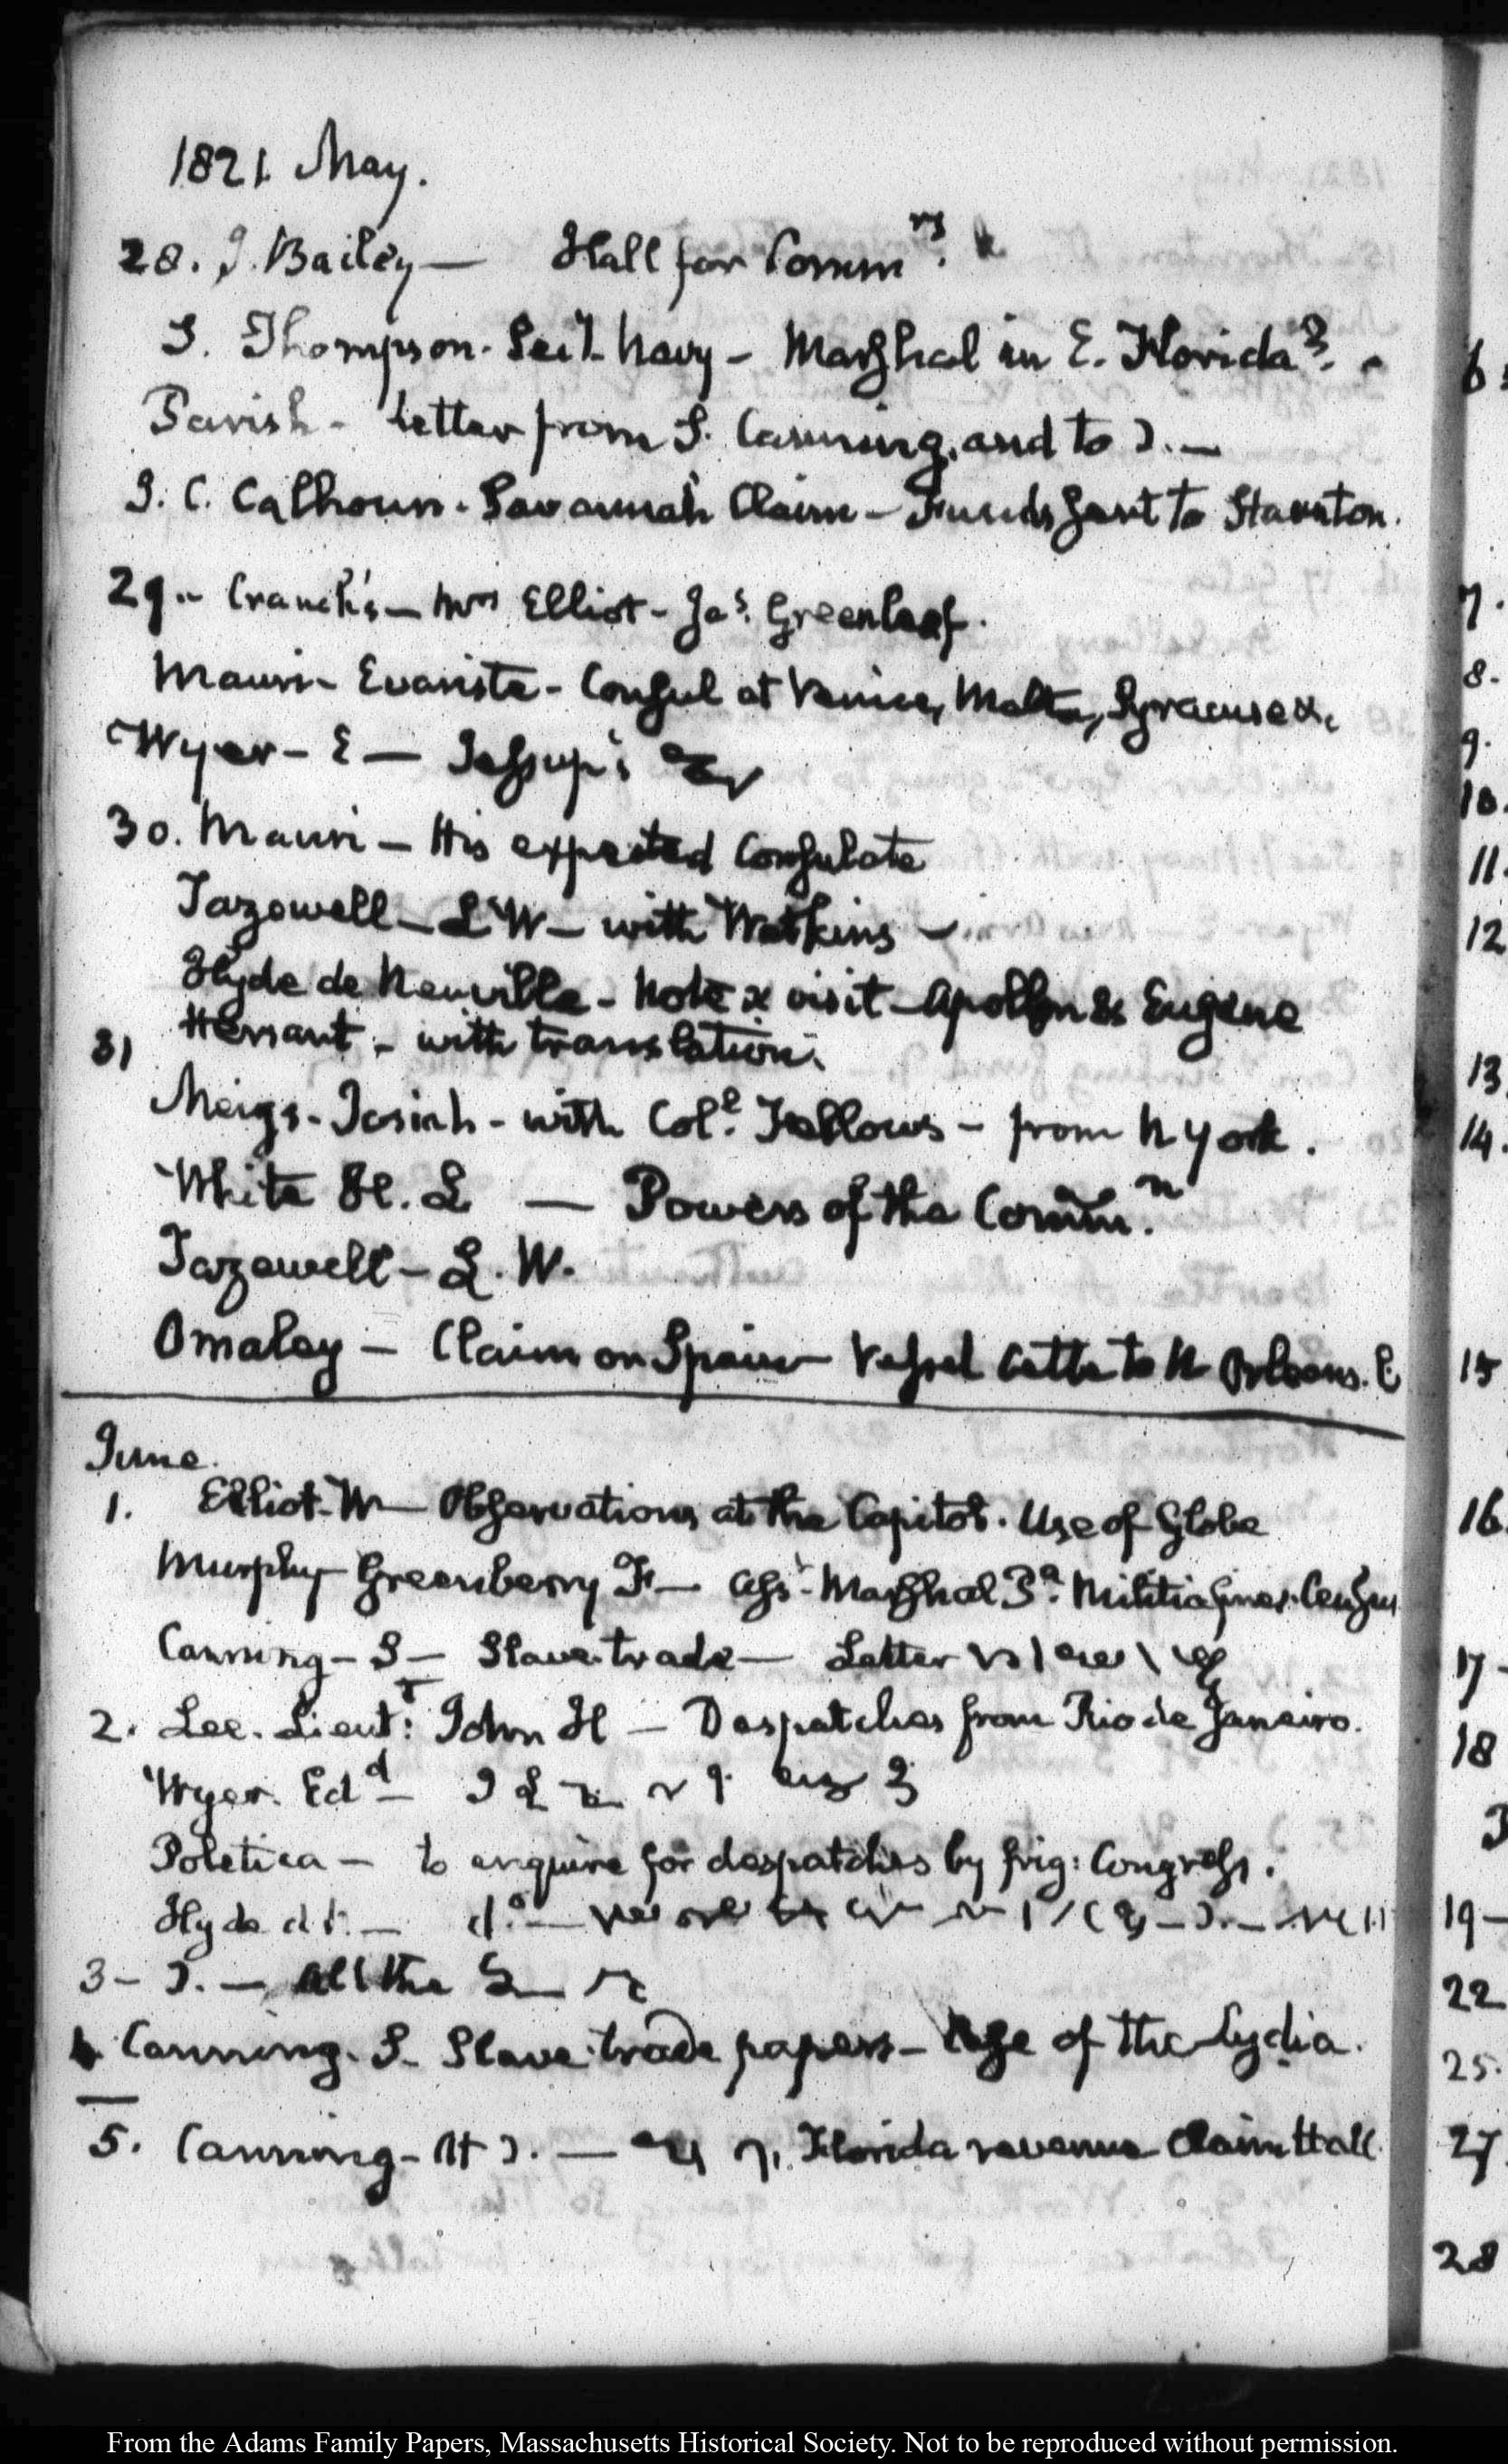 1821. May.
28. J. Bailey — Hall for Commrs.
S. Thompson. Secy. Navy — Marshal in E. Florida
Parish — Letter from S. Canning, and to
J. C. Calhoun. Savannah Claim — Funds sent to Staunton.
29. Cranch's — Mrs Elliot — Jas. Greenleaf.
Mauri — Evariste — Consul at Venice, Malta, Syracuse &c
Wyer — E — Jessup's
30. Mauri — His expected Consulate
Tazewell — L W — with Watkins —
Hyde de Neuville — Note & visit — Apollon & Eugene
31 Hersant — with translation.
Meigs — Josiah — with Col. Fellows — from N York.
White H. L — Powers of the Comm.n
Tazewell — L. W.
Omaley — Claim on Spain — Vessel to N Orleans.
June.
1. Elliot. W — Observations at the Capitol. Use of Globe
Murphy Greenberry F — Asst. Marshal Pa. Militia fines. Census
Canning — S — Slave trade — Letter
2. Lee. Lieutt: John H — Despatches from Rio de Janeiro.
Wyer. Edd —
Poletica — to enquire for despatches by frig: Congress.
Hyde d N. — do. —
3 — — All the
4 Canning. S. Slave trade papers — Case of the Lydia.
5. Canning — Florida revenue Claim Hall.
6.
7.
8.
9.
10.
11.
12
13
14.
15
16.
17 —
18
19 —
22
25.
27
28
From the Adams Family Papers, Massachusetts Historical Society. Not to be reproduced without permission.